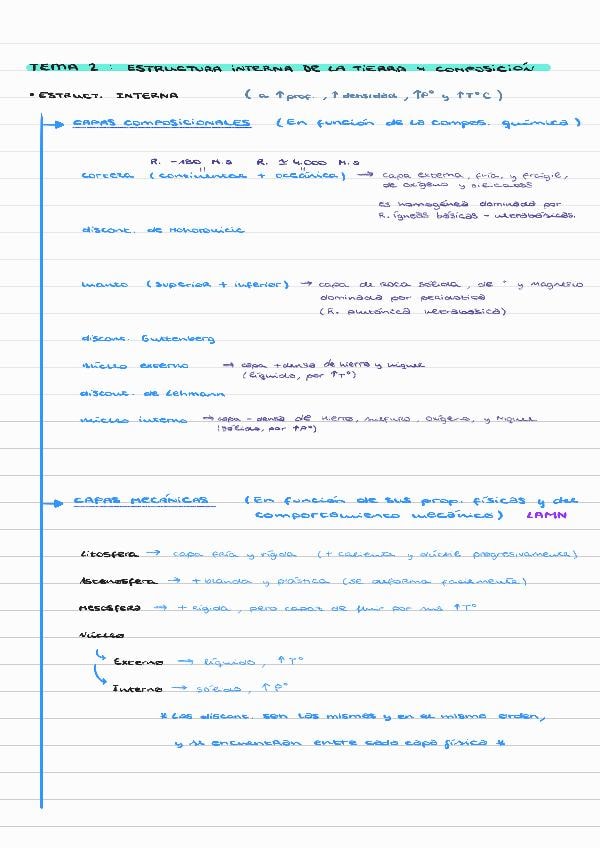 TEMA 2 : ESTRUCTURA INTERNA DE LA TIERRA Y COMPOSICIÓN
• ESTRUCT. INTERNA ( a ↑ prof. , ↑ densidad , ↑Pº y ↑TºC )
→ CAPAS COMPOSICIONALES ( En función de la compos. química )
R. -180 M.a R. ≥ 4.000 M.a
corteza ( continental + oceánica ) → capa externa, fría, y frágil,
de oxígeno y silicatos
es homogénea dominada por
R. ígneas básicas - ultrabásicas.
discont. de Mohorovicic
manto ( superior + inferior ) → capa de roca sólida , de " y magnesio
dominada por peridotita
( R. plutónica ultrabásica )
discont. Guttenberg
núcleo externo → capa + densa de hierro y níquel
( líquido, por ↑Tº )
discont. de Lehmann
núcleo interno → capa - densa de hierro, sulfuro, oxígeno, y níquel
( sólido, por ↑Pº )
→ CAPAS MECÁNICAS ( En función de sus prop. físicas y del
comportamiento mecánico ) LAMN
Litosfera → capa fría y rígida ( + caliente y dúctil progresivamente )
Astenosfera → + blanda y plástica ( se deforma facilmente )
Mesosfera → + rígida , pero capaz de fluir por sus ↑Tº
Núcleo
Externo → líquido , ↑Tº
Interno → sólido , ↑Pº
* Las discont. son las mismas y en el mismo orden,
y se encuentran entre cada capa física *